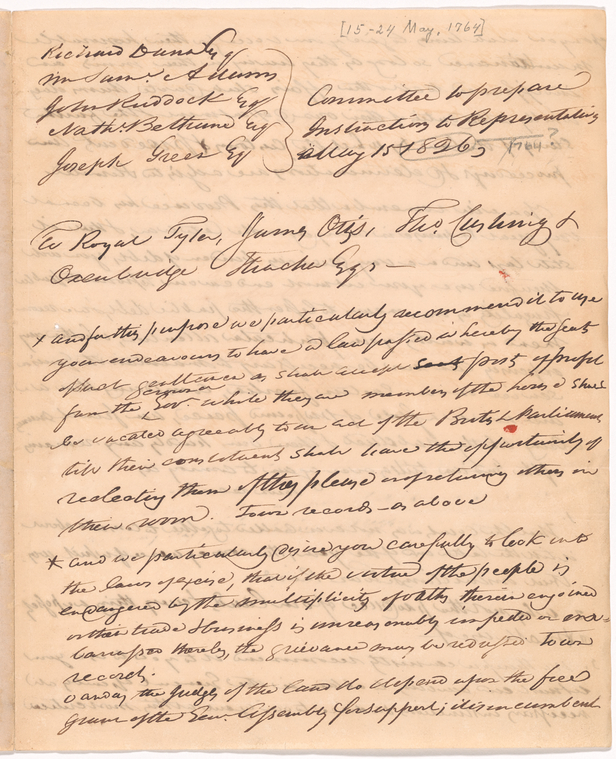 [15-24 May, 1764]
Richard Dana Esqr
Mr Saml. Adams
John Ruddock Esqr
Nathl. Bethune Esqr
Joseph Green Esqr
Committee to prepare
Instructions to Representatives
May 15 1764
To Royal Tyler, James Otis, Thos. Cushing &
Oxenbridge Thacher Esqrs
x and for this purpose we particularly recommend it to use
your endeavours to have a law passed whereby the seats
of such gentlemen as shall accept posts of profit
from the Crown or Govr. while they are members of the house shall
be vacated agreably to an act of the British Parliament
till their constituents shall have the opportunity of
reelecting them if they please or of returning others in
their room. Town records - as above
x and we particularly desire you carefully to look into
the laws of excise, that if the virtue of the people is
endangered by the multiplicity of oaths therein enjoined
or their trade & business is unreasonably impeded or em-
barrassed thereby, the grievance may be redressed Town
records
o and as the Judges of the land do depend upon the free
grants of the Genl. Assembly for support; it is incumbent